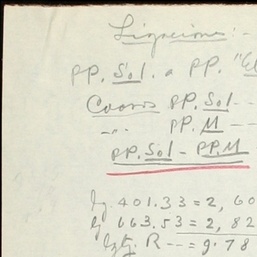 Ligacion:-
PP. Sol. a PP. "El
PP. Sol.--
" PP. M --
PP. Sol - PP. M
lg. 401.33 = 2, 60
lg 663.53 = 2, 82
R --= 9.78